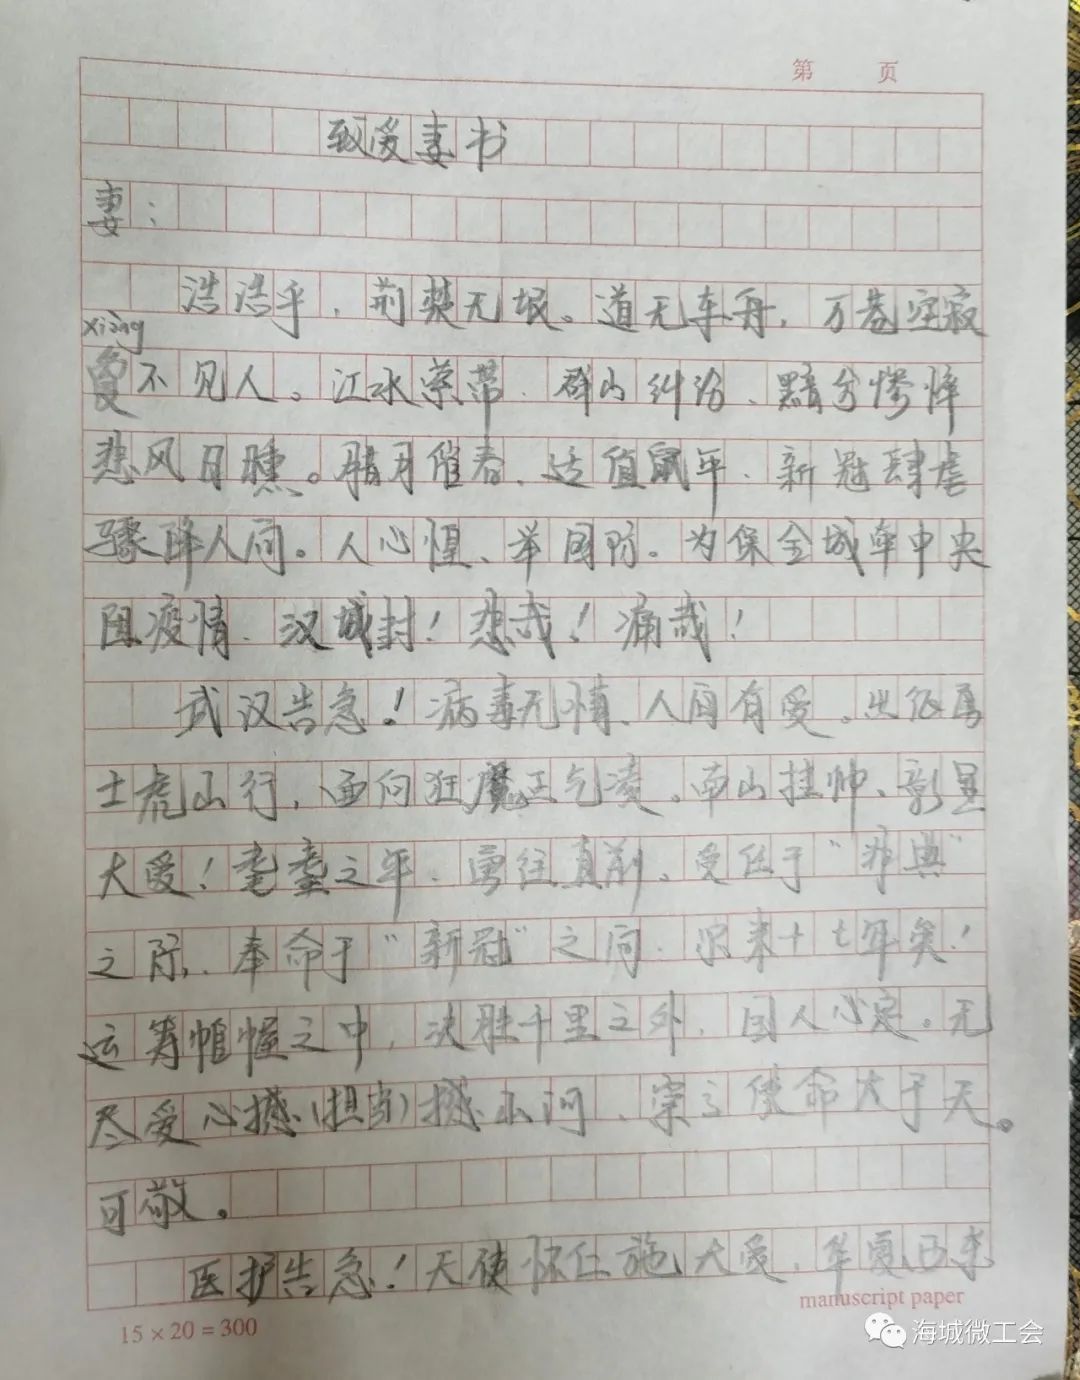 第 页
致爱妻书
妻：
浩浩乎，荆楚无垠。道无车舟，万巷空寂
xiòng
夐不见人。江水萦带，群山纠纷，黯兮惨悴
悲风日曛。腊月催春，适值鼠年，新冠肆虐
骤降人间。人心惶、举国防。为保全城牵中央
阻疫情，汉城封！悲哉！痛哉！
武汉告急！病毒无情、人间有爱。出征勇
士虎山行，面向狂魔正气凌。南山挂帅、彰显
大爱！耄耋之年，勇往直前。受任于“非典”
之际，奉命于“新冠”之间，尔来十七年矣！
运筹帷幄之中，决胜千里之外，国人心定。无
尽爱心撼(担当)撼山河、 使命大于天。
可敬。
医护告急！天使怀仁施大爱，华夏西东
manuscript paper
15×20=300
海城微工会